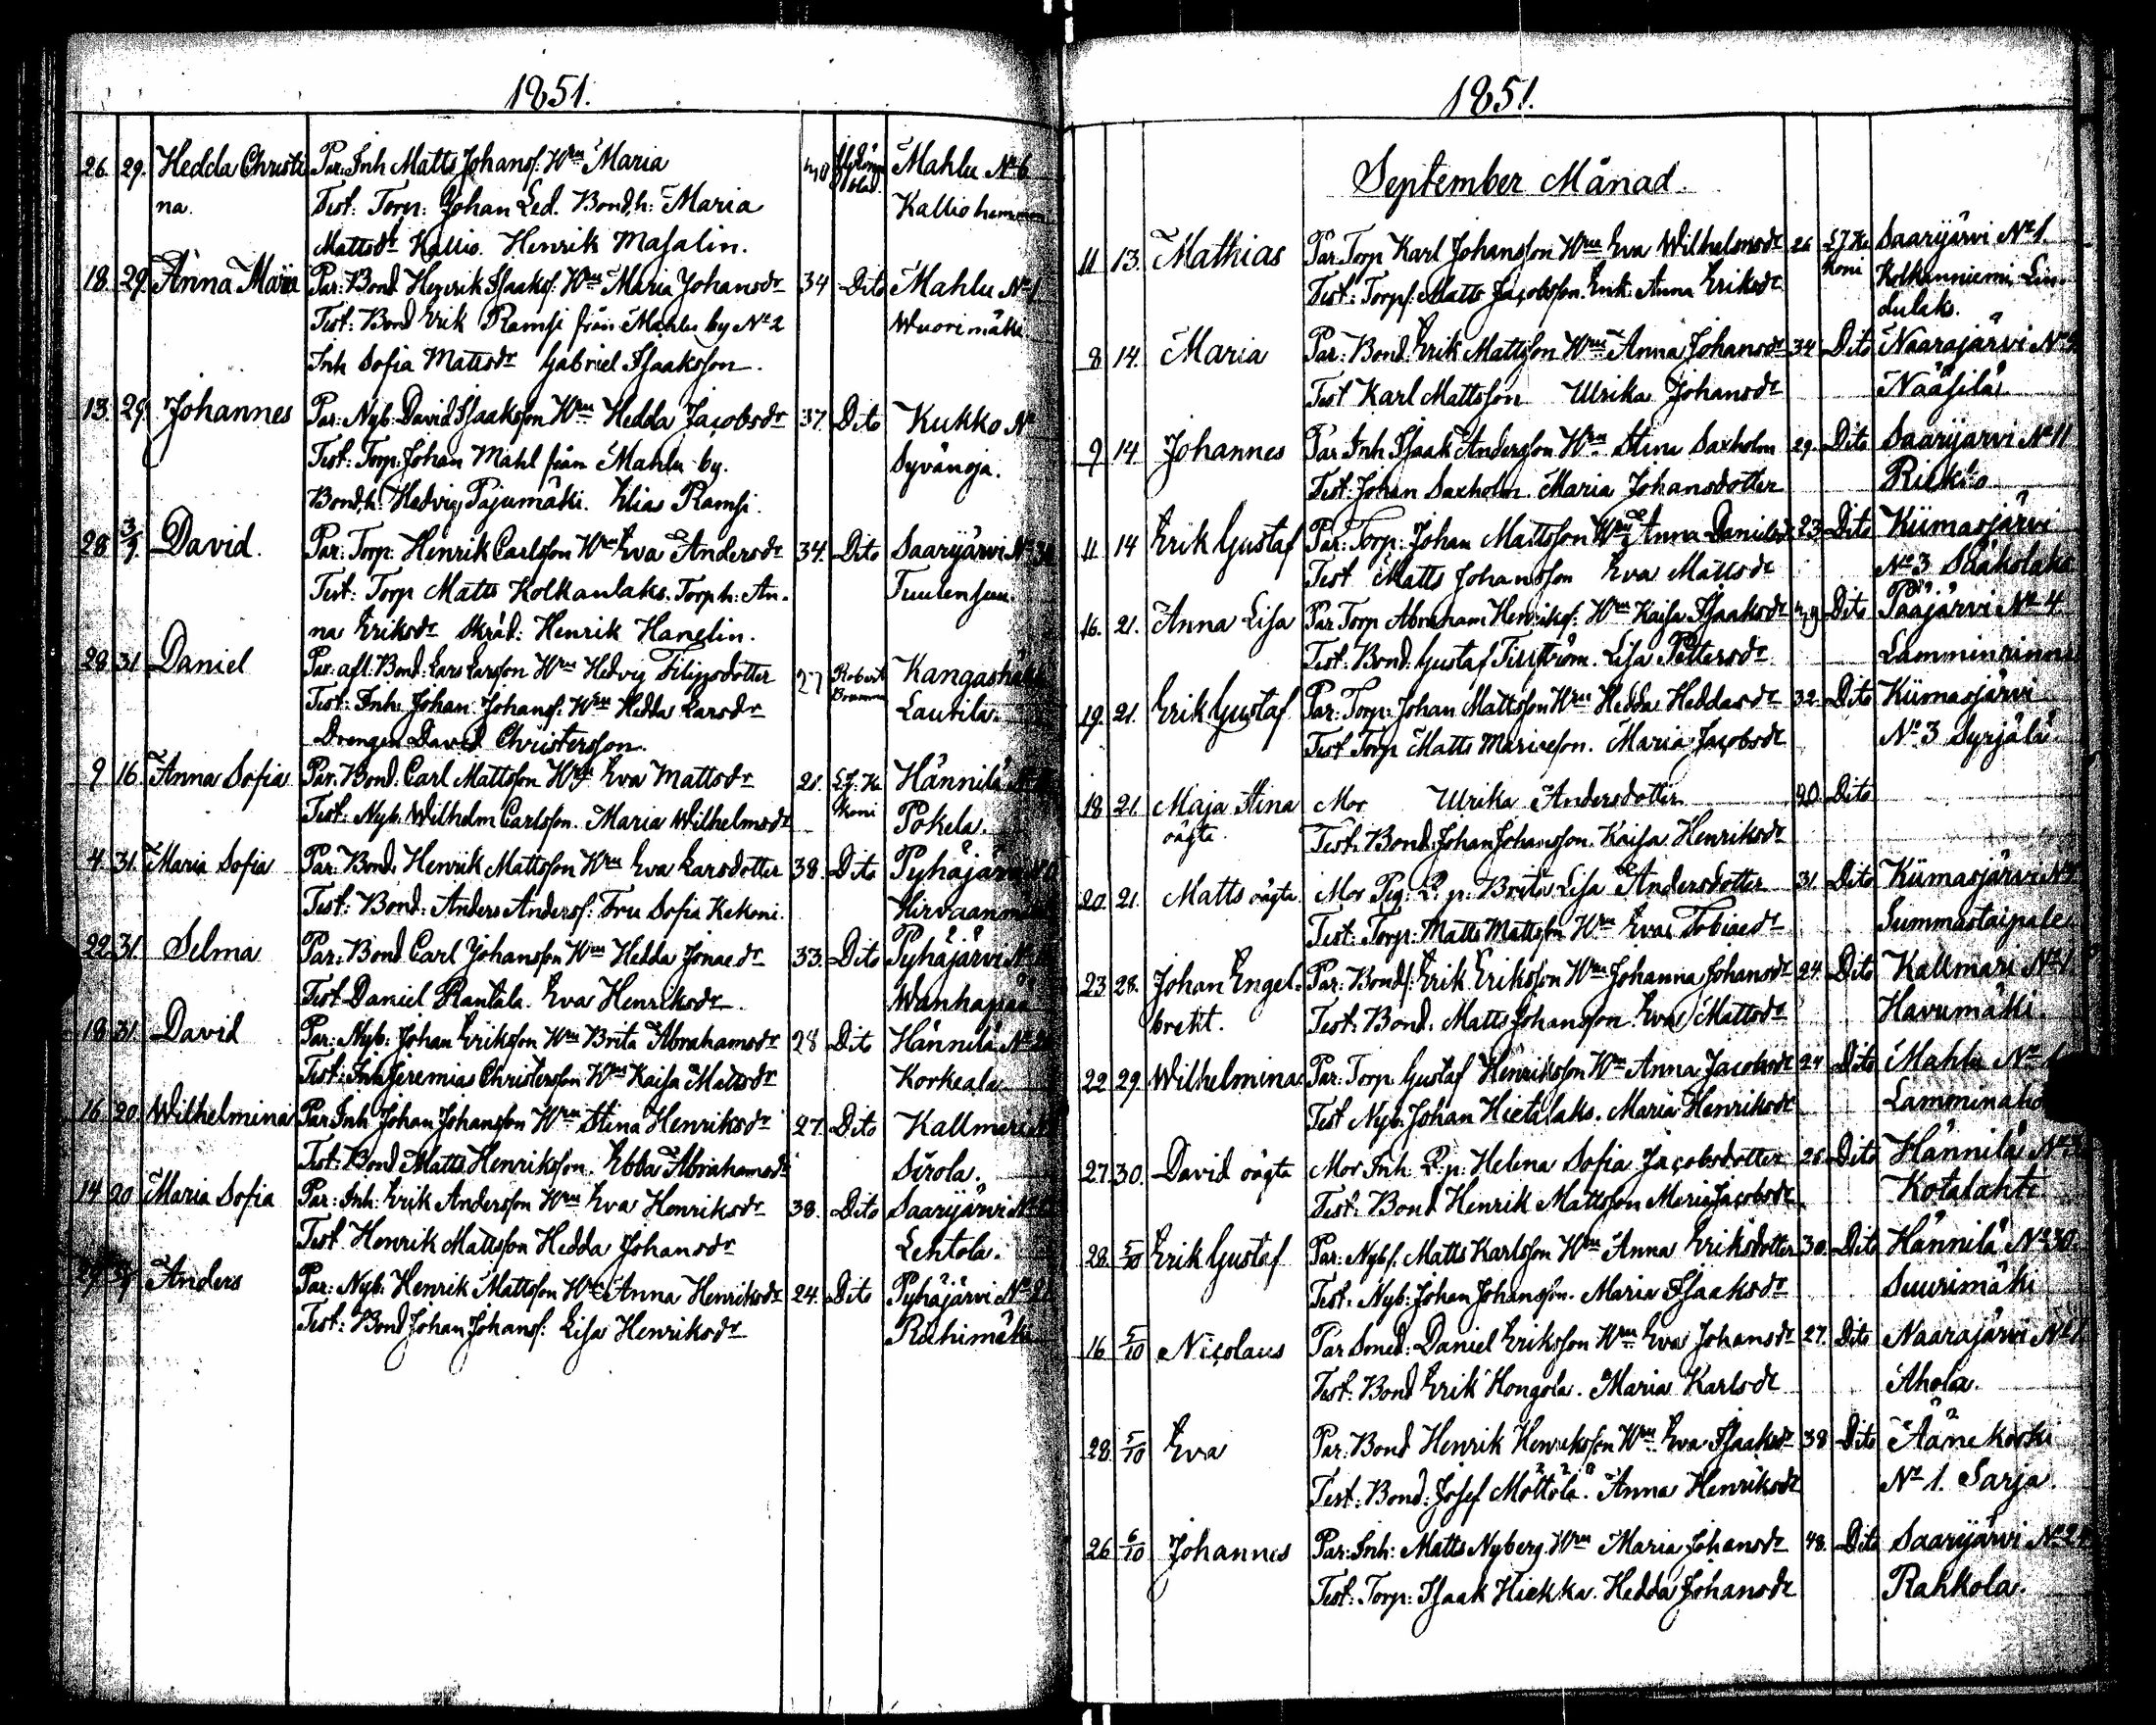 1851.
26. 29. Hedda Christi Par: Inh Matts Johansf: Wm Maria 40 Mahlu No 6
na. Test: Torp: Johan Led. Bond,h: Maria Kalliohemmen
Mattsdr Kallio. Henrik Masalin.
18. 29. Anna Maria Par: Bond Henrik Isaaksf: Wm Maria Johansdr 34 Dito Mahlu No 1
Test: Bond Erik Ramsi från Mahlu by No 2 Wuorimäki
Inh Sofia Mattsdr Gabriel Isaaksson.
13. 29. Johannes Par: Nyb: David Isaaksson Wm Hedda Jacobsdr 37. Dito Kukko No
Test: Torp: Johan Mahl från Mahlu by. Syvänoja.
Bond,h: Hedvig Pajumäki. Elias Ramsi.
28 3/9. David. Par: Torp: Henrik Carlsson Wm Eva Andersdr 34. Dito Saarijärvi No
Test: Torp Matts Kolkanlaks. Torp h: An-
na Eriksdr Skräd: Henrik Hanelin.
28 31 Daniel Par: afl. Bond: Lars Larsson Wm Hedvig Filipsdotter 27 Robert Kangashäkki
Test: Inh: Johan Johansf: Wm Hedda Larsdr Lautila.
Drengen David Christersson.
9 16. Anna Sofia Par: Bond: Carl Mattsson Wm Eva Mattsdr 21. Hännilä
Test: Nyb. Wilhelm Carlsson. Maria Wilhelmsdr Pokela.
4. 31. Maria Sofia Par: Bond: Henrik Mattsson Wm Eva Larsdotter 38. Dito Pyhäjärvi
Test: Bond: Anders Andersf: Fru Sofia Kekoni. Hirvaanmäki
22 31. Selma Par: Bond Carl Johansson Wm Hedda Jonaedr 33. Dito Pyhäjärvi
Test Daniel Rantala. Eva Henriksdr. Wanhapää
18 31. David Par: Nyb: Johan Eriksson Wm Brita Abrahamsdr 28 Dito Hännilä
Test: Inh Jeremias Christersson Wm Kaisa Mattsdr Korkeala
16 20 Wilhelmina Par Inh Johan Johansson Wm Stina Henriksdr 27. Dito Kallmari
Test: Bond Matts Henriksson. Ebba Abrahamsdr Sirola.
14 20 Maria Sofia Par: Inh: Erik Andersson Wm Eva Henriksdr 38. Dito Saarijärvi
Test Henrik Mattsson Hedda Johansdr Lehtola.
Anders Par: Nyb: Henrik Mattsson Wm Anna Henriksdr 24. Dito Pyhäjärvi No
Test: Bond Johan Johansf: Lisa Henriksdr Riihimäki
1851.
September Månad.
11 13. Mathias Par Torp Karl Johansson Wm Eva Wilhelmsdr 26 Saarijärvi No 1.
Test: Torpf: Matts Jacobsson. Enk: Anna Eriksdr Kolkanniemi, Lin-
dulaks.
8 14. Maria Par: Bond: Erik Mattsson Wm Anna Johansdr 34 Dito Naarajärvi No
Test Karl Mattsson Ulrika Johansdr Nääsilä
9 14 Johannes Par Inh Isaak Andersson Wm Stina Saxholm 29. Dito Saarijärvi No 11
Test: Johan Saxholm. Maria Johansdotter
11 14 Erik Gustaf Par: Torp: Johan Mattsson Wm Anna Danielsdr 23 Dito Kiimasjärvi
Test Matts Johansson Eva Mattsdr No 3 Sääkolaks
16. 21. Anna Lisa Par Torp Abraham Henriksf: Wm Kaisa Isaaksdr 29 Dito Pääjärvi No 4.
Test: Bond: Gustaf Lisa Pettersdr Lamminrinne
19. 21. Erik Gustaf Par: Torp: Johan Mattsson Wm Hedda Heddasdr 32 Dito Kiimasjärvi
Test Torp Matts Mariaeson. Maria Jacobsdr No 3 Syrjälä.
18 21. Maja Stina Mor Ulrika Andersdotter 20. Dito
oägta. Test: Bond: Johan Johansson. Kaisa Henriksdr
20. 21. Matts oägta Mor Pig: L. p: Brita Lisa Andersdotter 31. Dito Kiimasjärvi No
Test: Torp: Matts Mattsson Wm Eva Tobiaedr Summastaipale
23 28. Johan Engel- Par: Bondf: Erik Eriksson Wm Johanna Johansdr 24. Dito Kallmari No 1.
brekt. Test: Bond: Matts Johansson. Eva Mattsdr Havumäki.
22 29. Wilhelmina Par: Torp Gustaf Henriksson Wm Anna Jacobsdr 24 Dito Mahlu No
Test Nyb. Johan Hietalaks. Maria Henriksdr Lamminaho
27. 30. David oägta Mor Inh. L. p: Helena Sofia Jacobsdotter 26 Dito Hännilä No
Test: Bond Henrik Mattsson Maria Jacobsdr Kotalahti
28. 5/10 Erik Gustaf Par: Nybf. Matts Karlsson Wm Anna Eriksdotter 30. Dito Hännilä No 30.
Test. Nyb: Johan Johansson. Maria Isaaksdr Suurimäki
16 5/10 Nicolaus Par Soned: Daniel Eriksson Wm Eva Johansdr 27. Dito Naarajärvi No
Test: Bond Erik Hongola. Maria Karlsdr Ahola.
28 5/10 Eva Par: Bond Henrik Henriksson Wm Eva Isaaksdr 38 Dito Äänekoski
Test: Bond: Josef Möttölä. Anna Henriksdr No 1. Sarja.
26 6/10 Johannes Par: Inh: Matts Nyberg. Wm Maria Johansdr 48. Dito Saarijärvi No
Test: Torp: Isaak Hiekka. Hedda Johansdr Rahkola.